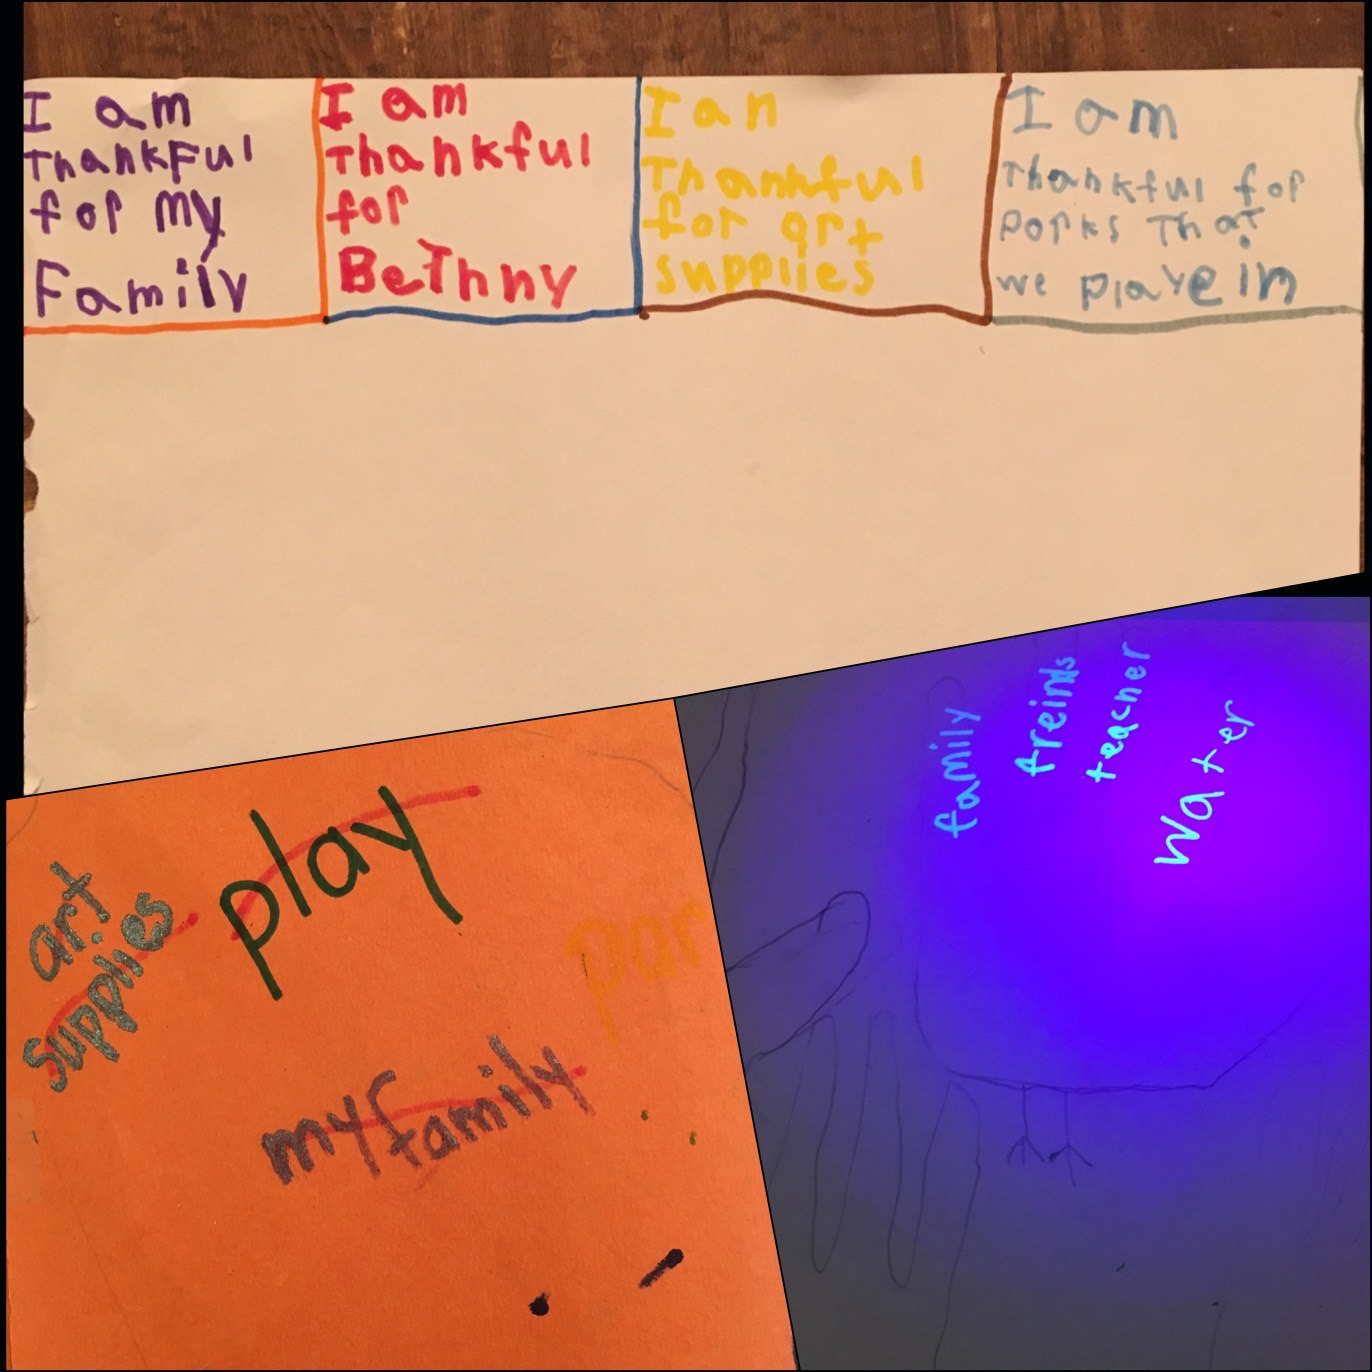 I am
Thankful
for my
Family
I am
Thankful
for
BeThny
I an
Thankful
for art
supplies
I am
Thankful for
Porks That
we playe in
art
supplies
play
par
my family
family
freinds
teacher
Water